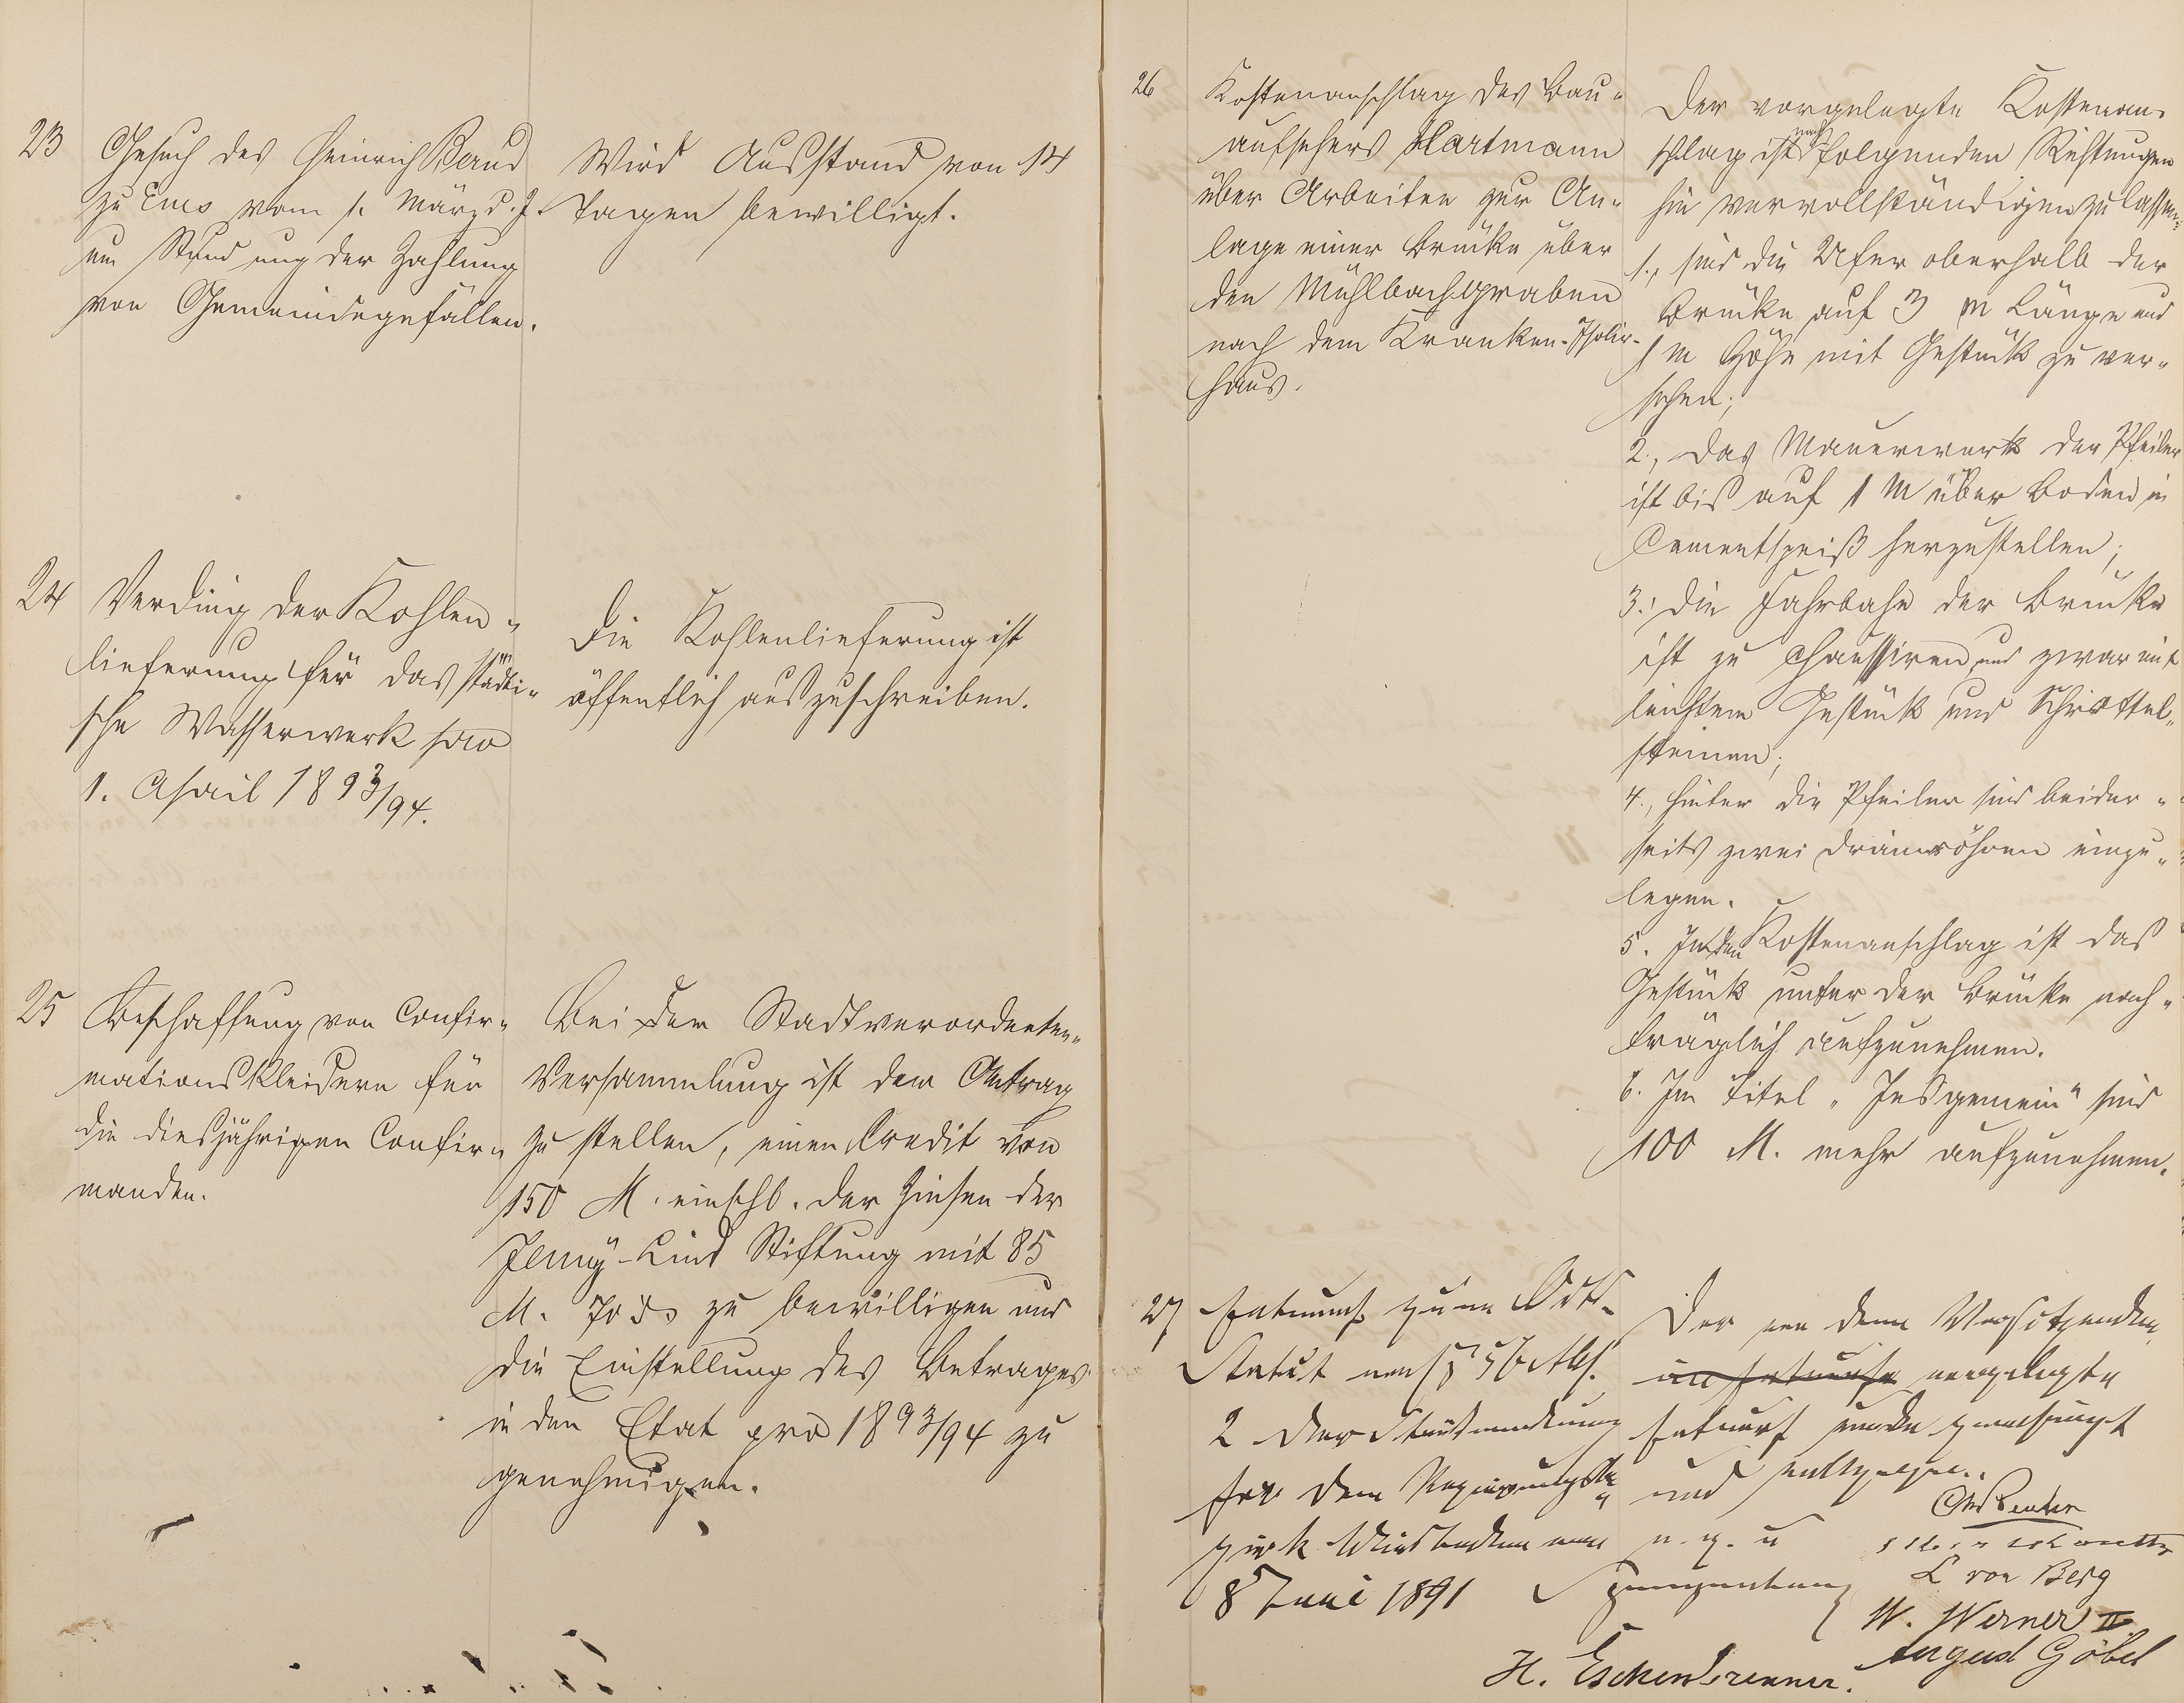 23
Gesuch des Heinrich Baud
zu Ems vom 1. März d. J.
um Stundung der Zahlung
von Gemeindegefällen.
Wird Ausstand von 14
Tagen bewilligt.
24
Verding der Kohlen-
lieferung für das städti-
sche Wasserwerk pro
1. April 1893/94.
Die Kohlenlieferung ist
öffentlich auszuschreiben.
25
Beschaffung von Confir-
mationskleidern für
die diesjährigen Confir-
manden.
Bei der Stadtverordneten-
Versammlung ist der Antrag
zu stellen, einen Credit von
150 M. einschl. der Zinsen der
Jenny-Lind Stiftung mit 85
M. zu bewilligen und
die Einstellung des Betrages
in den Etat pro 1893/94 zu
genehmigen.
26
Kostenanschlag des Bau-
aufsehers Hartmann
über Arbeiten zur An-
lage einer Brücke über
den Mühlbachgraben
nach dem Kranken-Isolir-
haus.
Der vorgelegte Kostenan-
schlag ist nach folgenden Richtungen
hin vervollständigen zu lassen:
1., sind die Ufer oberhalb der
Brücke auf 3 m Länge und
1 m Höhe mit Gestück zu ver-
sehen;
2., das Mauerwerk der Pfeiler
ist bis auf 1 m über Boden in
Cementspeiß herzustellen;
3. die Fahrbahn der Brücke
ist zu chaussiren und zwar mit
leichtem Gestück und Schrottel-
steinen;
4., hinter die Pfeiler sind beider-
seits zwei Drainröhren einzu-
legen.
5. In den Kostenanschlag ist das
Gestück unter der Brücke nach-
träglich aufzunehmen.
6. Im Titel "Insgemein" sind
100 M. mehr aufzunehmen.
27
Entwurf zum Orts-
Statut nach § 56 Abs.
2 der Städteordnung
für den Regierungsbe-
zirk Wiesbaden vom
8 Juni 1891
Der von dem Vorsitzenden
vorgelegte
Entwurf wurde genehmigt
und vollzogen.
v. g. u
L von Berg
W. Werner II
August Göbel
H. Eschenbrenner.